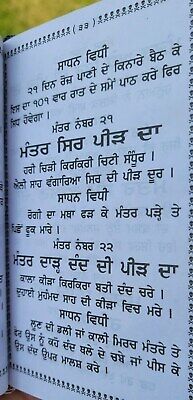 ( ੩੩ )
ਸਾਧਨ ਵਿਧੀ
੨੧ ਦਿਨ ਰੋਜ਼ ਪਾਣੀ ਦੇ ਕਿਨਾਰੇ ਬੈਠ ਕੇ
ਇਸ ਦਾ ੧੦੧ ਵਾਰ ਰਾਤ ਦੇ ਸਮੇਂ ਪਾਠ ਕਰੇ ਫਿਰ
ਸਿਧ ਹੋਵੇਗਾ।
ਮੰਤਰ ਨੰਬਰ ੨੧
ਮੰਤਰ ਸਿਰ ਪੀੜ ਦਾ
ਹਰੀ ਚਿੜੀ ਕਿਰਕਿਰੀ ਚਿਟੀ ਸੰਧੂਰ।
ਐਲੀ ਸਾਹ ਵੰਗਾਰਿਆ ਸਿਰ ਦੀ ਪੀੜ ਦੂਰ।
ਸਾਧਨ ਵਿਧੀ
ਰੋਗੀ ਦਾ ਮਥਾ ਫੜ ਕੇ ਮੰਤਰ ਪੜ੍ਹੇ ਤੇ
ਪਿਛੋਂ ਫੂਕ ਮਾਰੇ।
ਮੰਤਰ ਨੰਬਰ ੨੨
ਮੰਤਰ ਦਾੜ੍ਹ ਦੰਦ ਦੀ ਪੀੜ ਦਾ
ਕਾਲਾ ਕੀੜਾ ਕਿਰਕਿਰਾ ਬਤੀ ਦੰਦ ਚਰੇ।
ਦੁਹਾਈ ਮੁਹੰਮਦ ਸਾਹ ਦੀ ਕੀੜਾ ਵਿਚ ਮਰੇ।
ਸਾਧਨ ਵਿਧੀ
ਲੂਣ ਦੀ ਡਲੀ ਜਾਂ ਕਾਲੀ ਮਿਰਚ ਮੰਤਰੇ ਤੇ
ਫੇਰ ਉਸ ਨੂੰ ਕਹੇ ਦੰਦ ਥਲੇ ਦੇ ਚਬੇ ਜਾਂ ਪੀਸ ਕੇ
ਉਸ ਦੰਦ ਉਪਰ ਮਾਲਸ਼ ਕਰੇ।